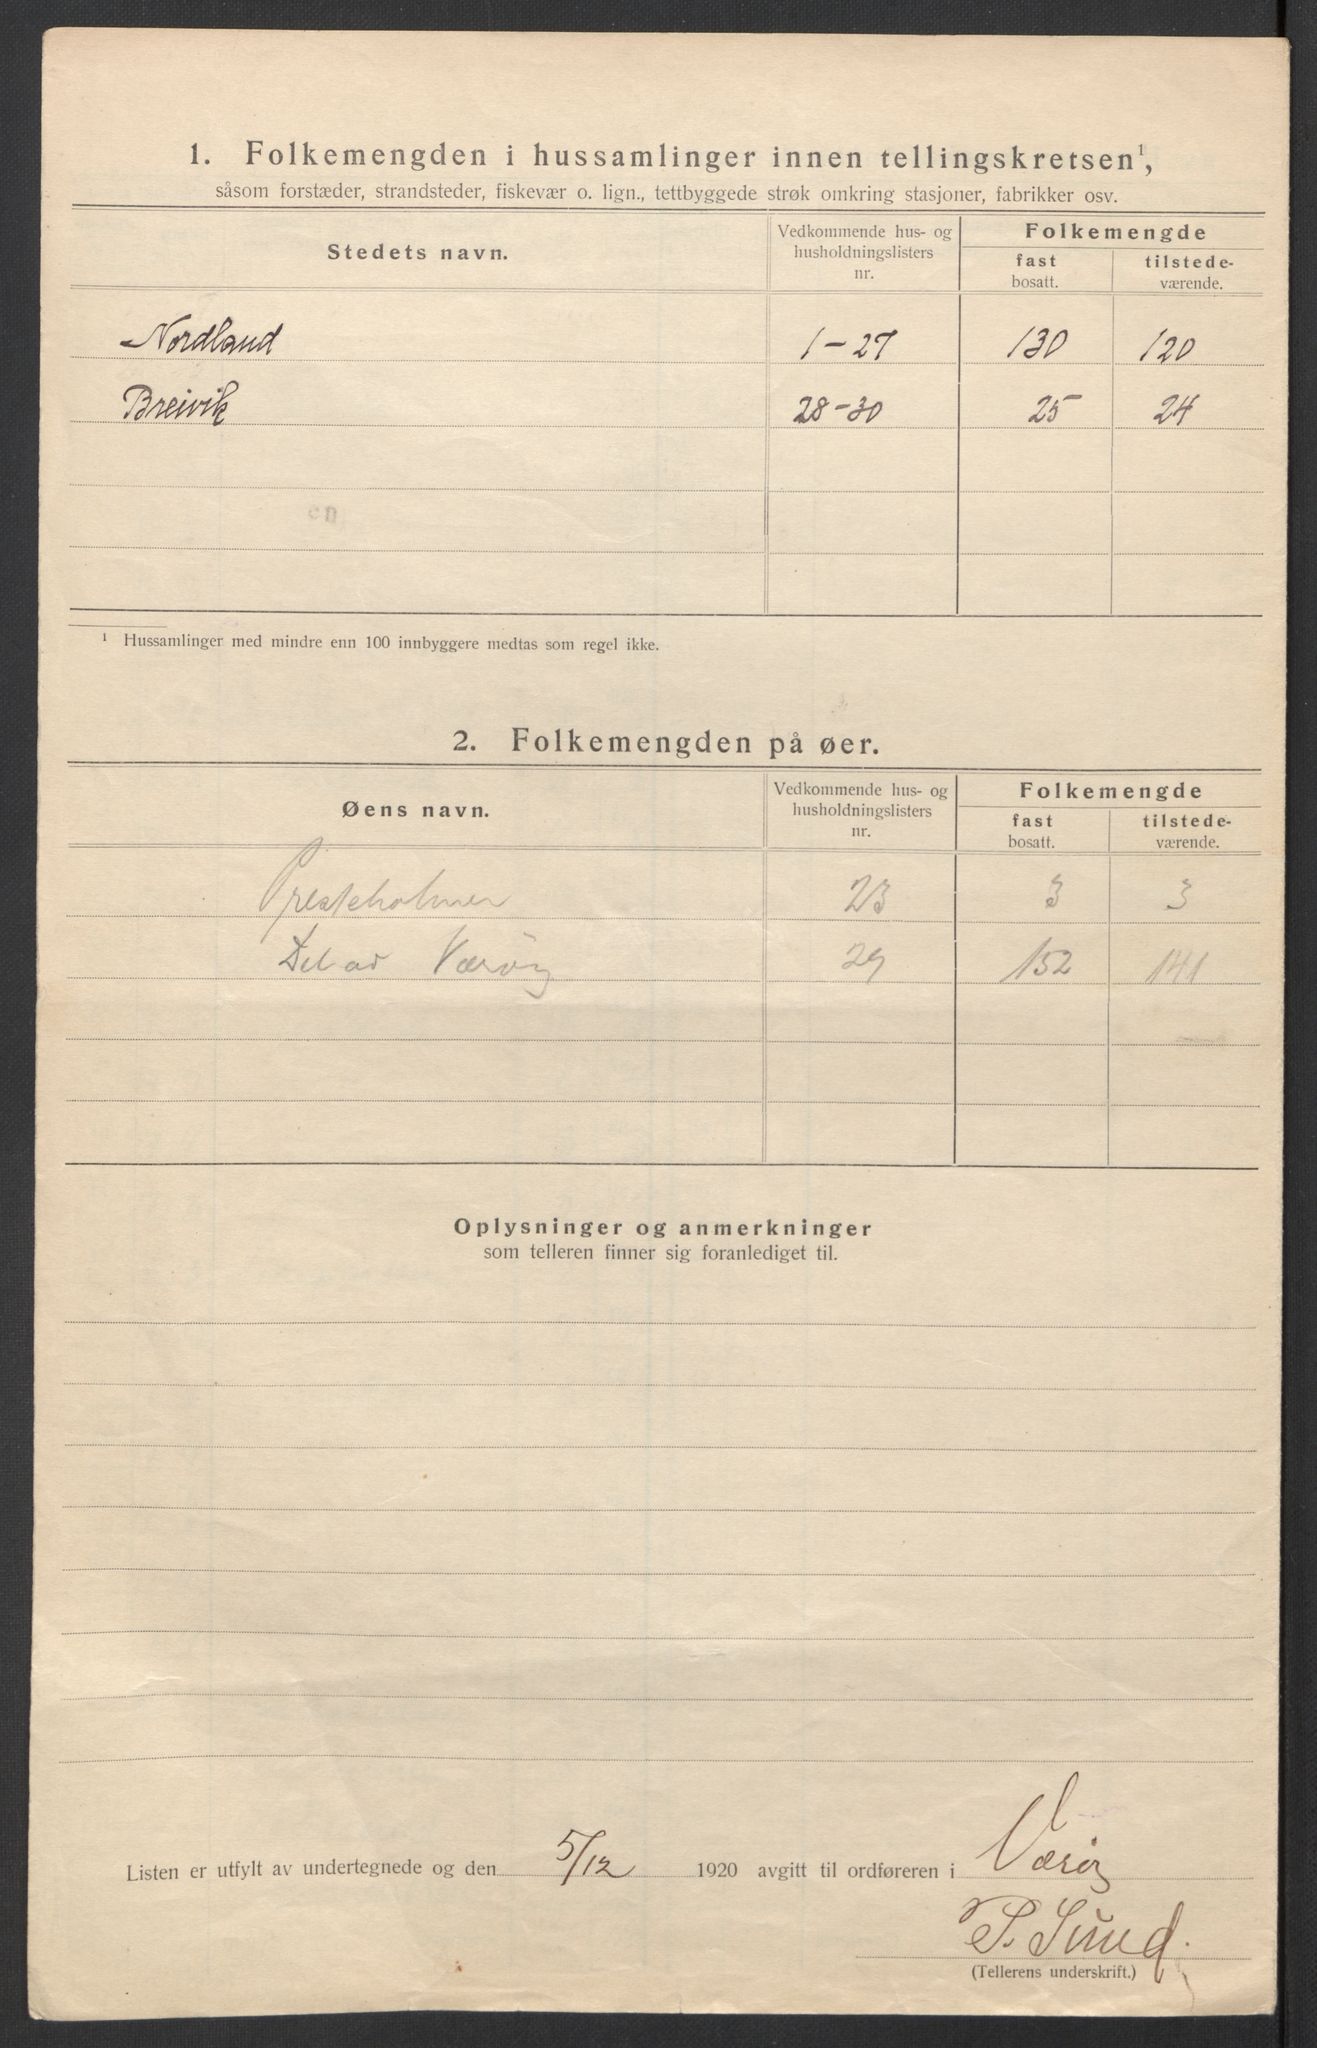 1. Folkemengden i hussamlinger innen tellingskretsen¹,
såsom forstæder, strandsteder, fiskevær o. lign., tettbyggede strøk omkring stasjoner, fabrikker osv.
Stedets navn.
Vedkommende hus- og
husholdningslisters
nr.
Folkemengde
fast
bosatt.
tilstede-
værende.
Nordland 1-27 130 120
Breivik 28-30 25 24
¹ Hussamlinger med mindre enn 100 innbyggere medtas som regel ikke.
2. Folkemengden på øer.
Øens navn.
Vedkommende hus- og
husholdningslisters
nr.
Folkemengde
fast
bosatt.
tilstede-
værende.
Presteholmen 23 3 3
Del av Værøy 29 152 141
Oplysninger og anmerkninger
som telleren finner sig foranlediget til.
Listen er utfylt av undertegnede og den 5/12 1920 avgitt til ordføreren i Værøy
P. Sund.
(Tellerens underskrift.)